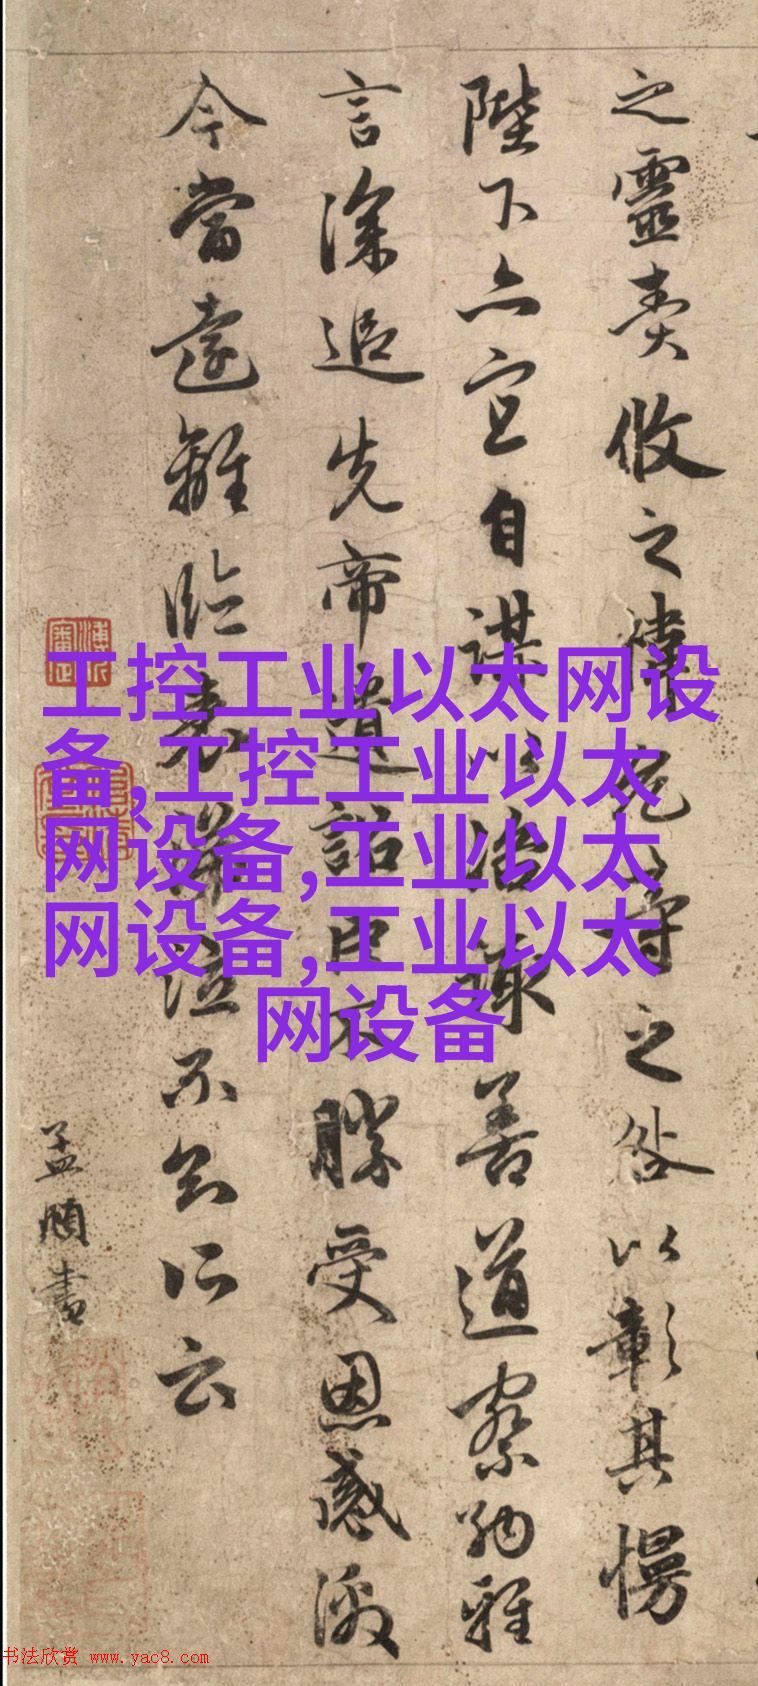 之靈責攸之禕允等之咎以彰其慢
陛下亦宜自謀以諮諏善道察納雅
言深追先帝遺詔臣不勝受恩感激
今當遠離臨表涕泣不知所云
孟頫書
工控工业以太网设
备,工控工业以太
网设备,工业以太
网设备,工业以太
网设备
书法欣赏 www.yac8.com